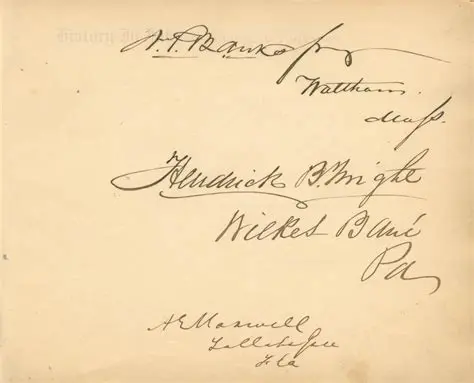 N. P. Banks
Waltham.
Mass.
Hendrick B. Wright
Wilkes Barré
Pa
A E Maxwell
Tallahassee
Fla